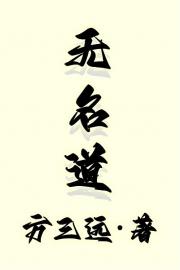 无名道
方三远·著